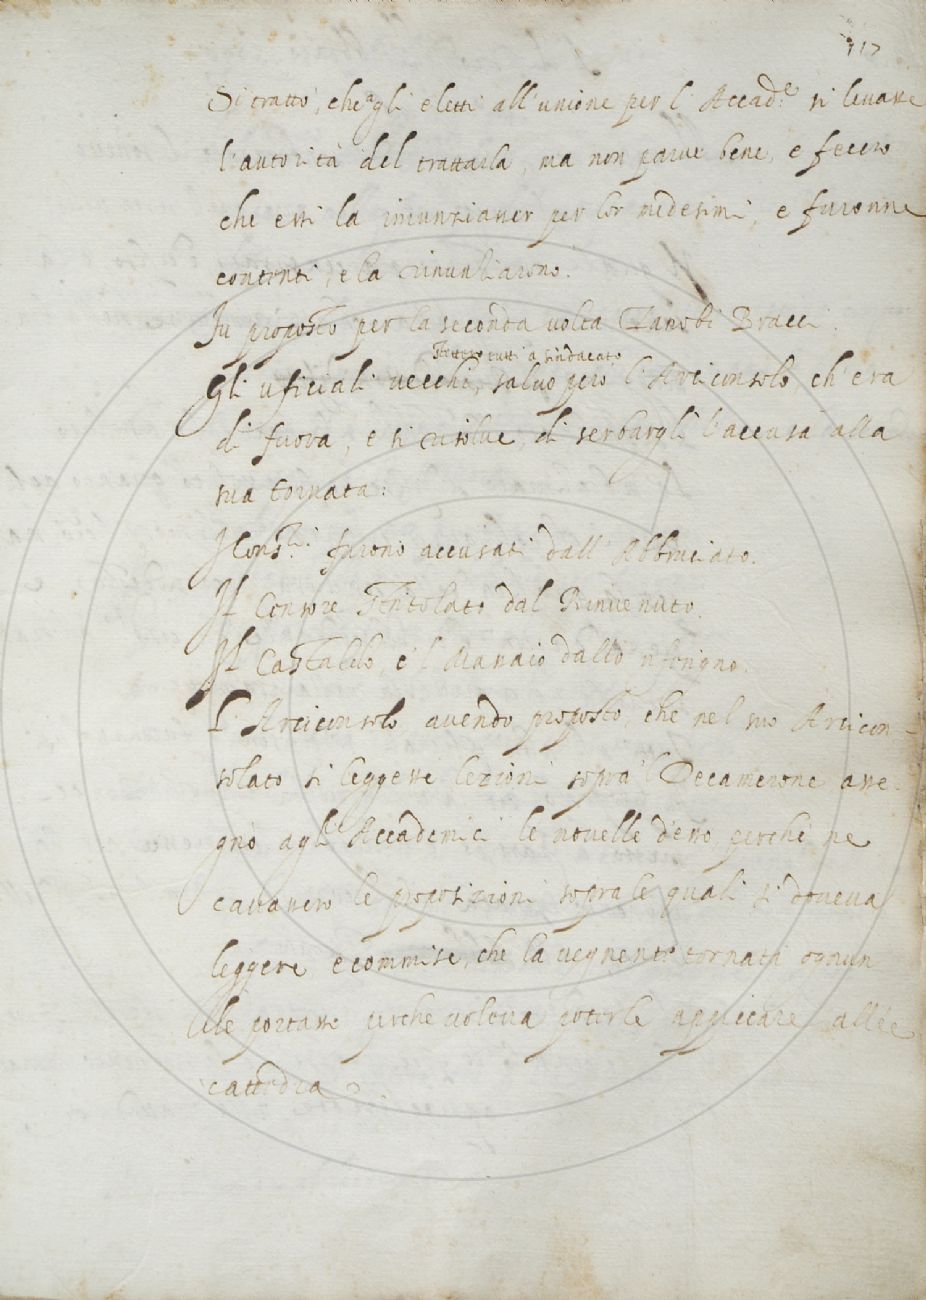 117
Si trattò, che agli eletti all'unione per l'Accad.e si levasse
l'autorità del trattarla, ma non parve bene, e fecero
che essi la rinunziasser per lor medesimi, e furonne
contenti, e la rinunziarono.
Fu proposto per la seconda volta Zanobi Bracci.
stettero tutti a sindacato
Gli uficiali vecchi, salvo però l'Arciconsolo, ch'era
di fuora, e si risolvé, di serbargli l'accusa alla
sua tornata:
I Cons.ri furono accusati dall'Abbruciato.
Il Censore Intolato dal Rinvenuto.
Il Castaldo, e 'l Massaio dallo 'nferigno.
L'Arciconsolo, avendo proposto, che nel suo Arcicon-
solato si leggesse lezioni sopra 'l Decamerone asse-
gnò agli Accademici le novelle d'esso, perchè ne
cavassero le proposizioni sopra le quali si doveva
leggere e commise, che la vegnente tornata ognun
le portasse perche voleva poterle appiccare alla
cattedra